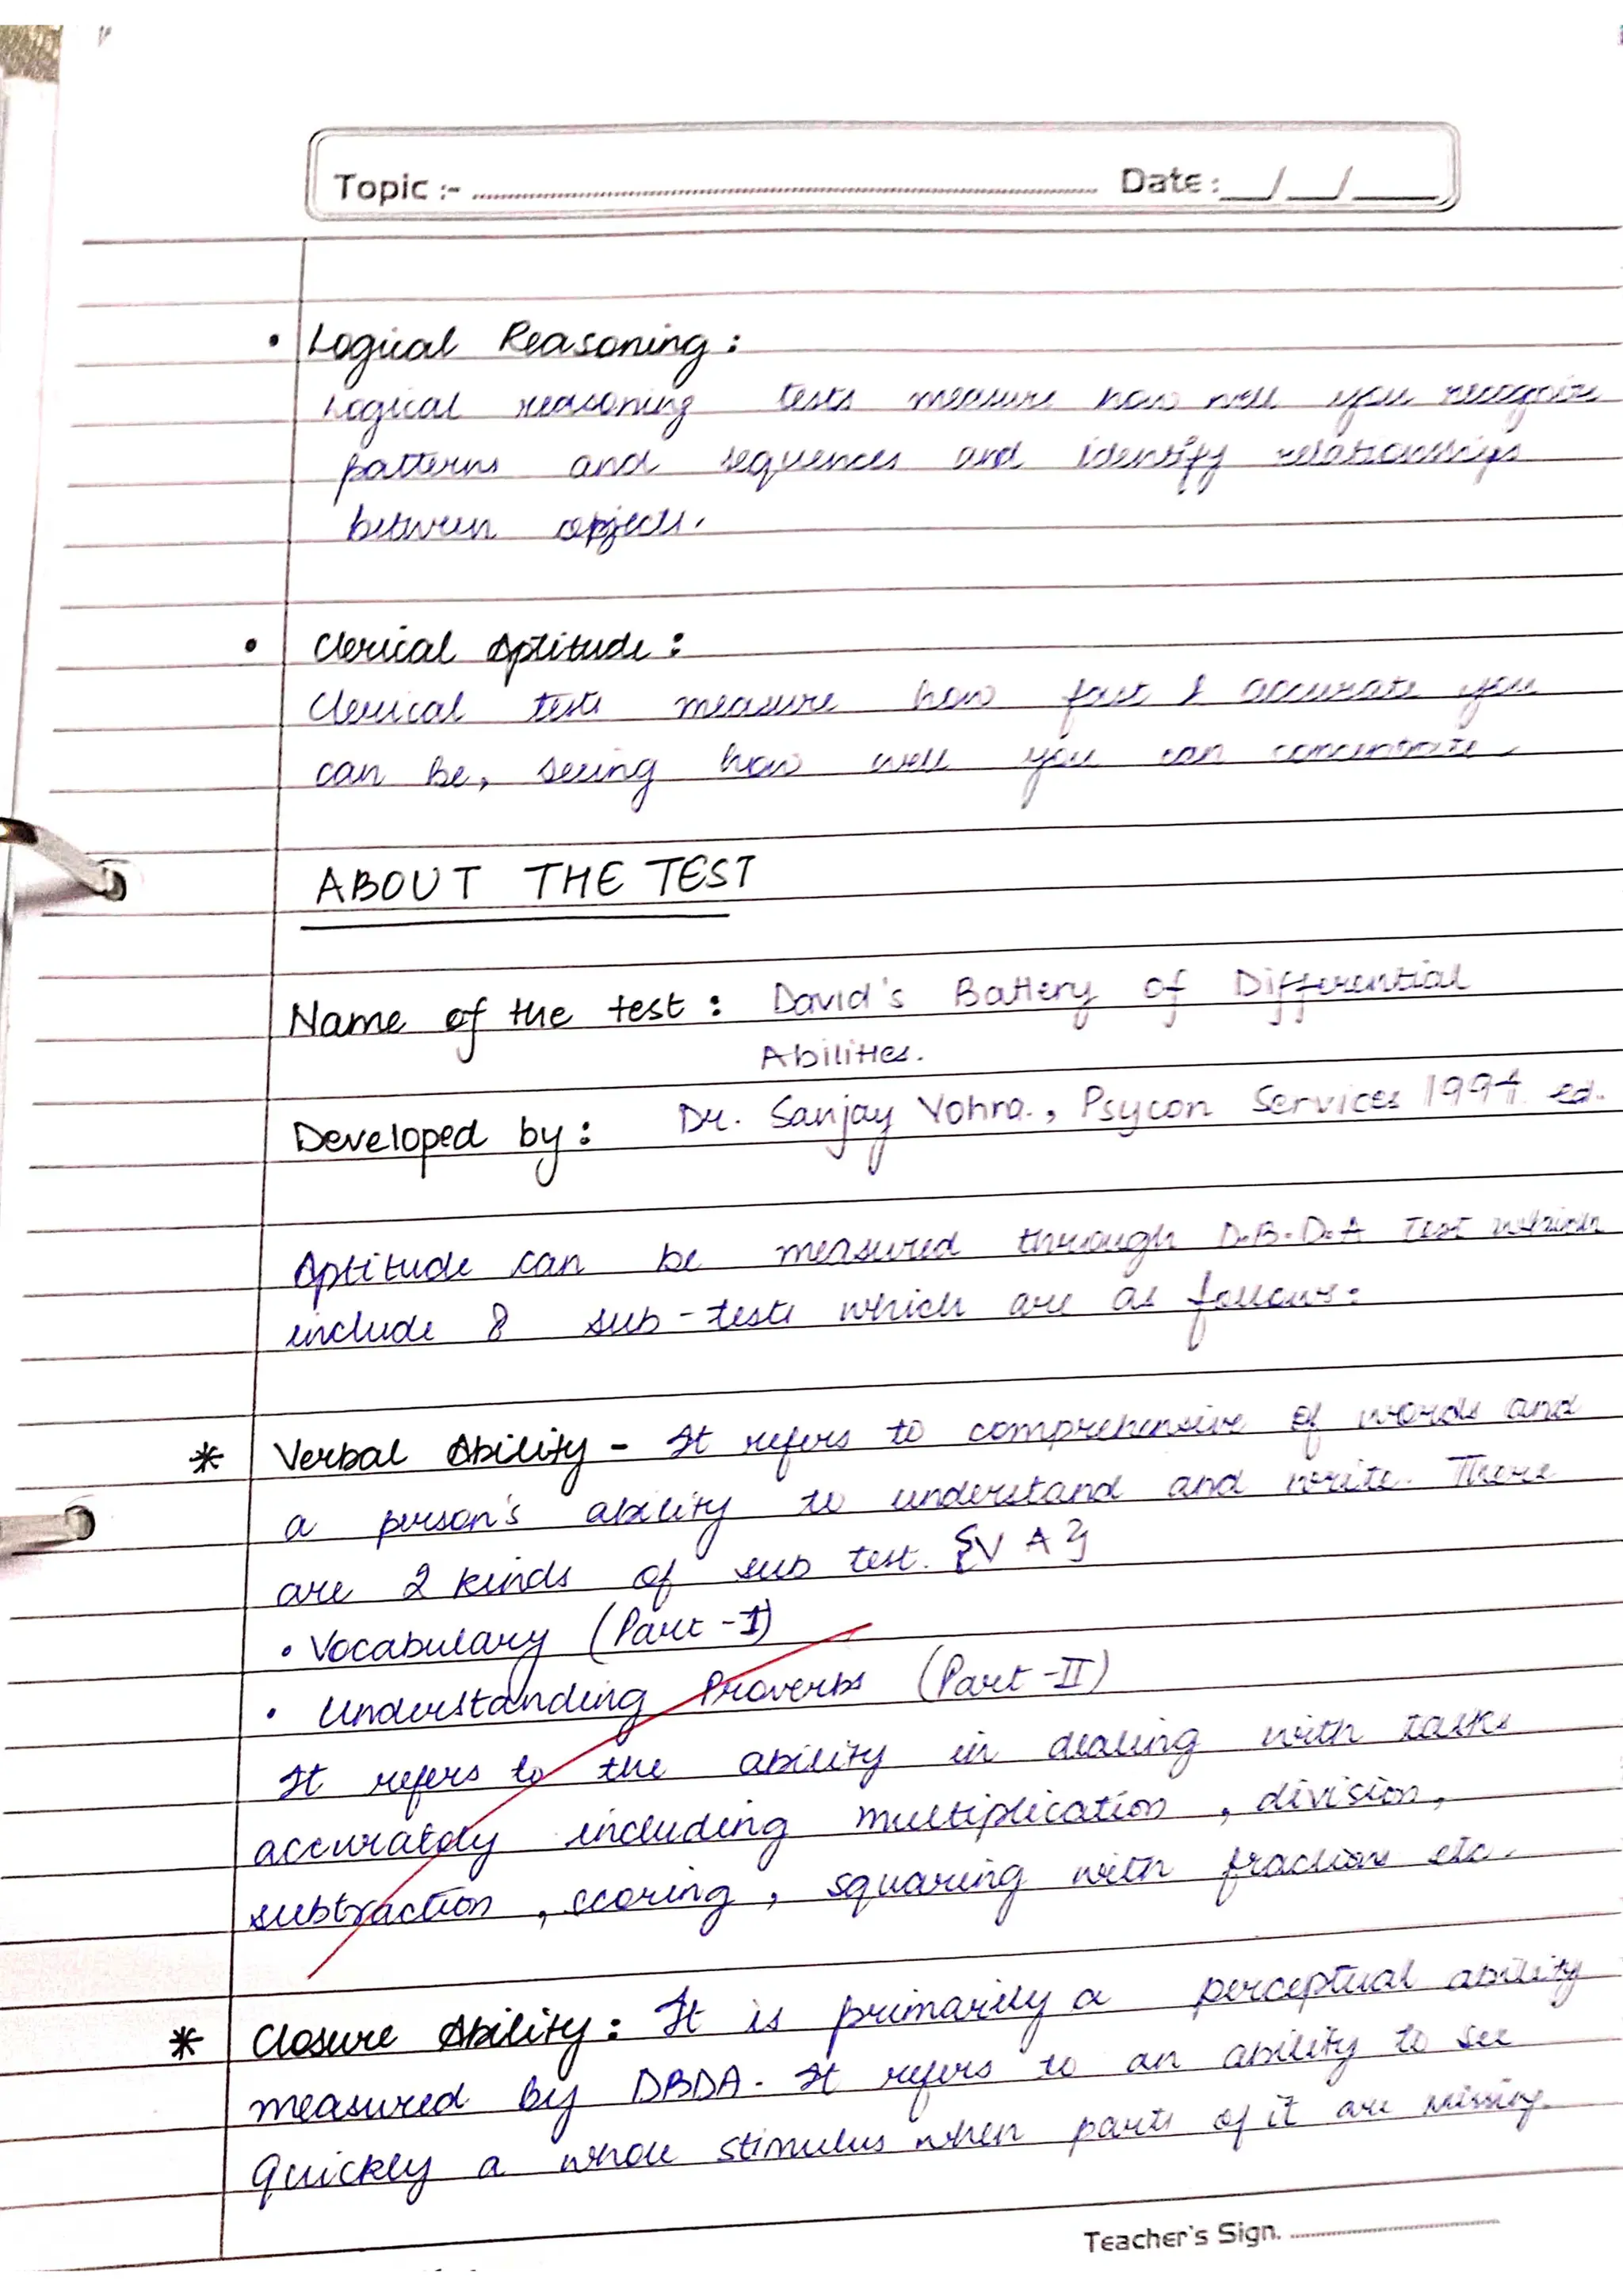 Topic :- Date : __/__/____
• Logical Reasoning :
Logical reasoning tests measure how well you recognize
patterns and sequences and identify relationships
between objects.
• Clerical Aptitude :
Clerical tests measure how fast & accurate you
can be, seeing how well you can concentrate.
ABOUT THE TEST
Name of the test : David's Battery of Differential
Abilities.
Developed by : Dr. Sanjay Vohra., Psycon Services 1994 ed.
Aptitude can be measured through D.B.D.A Test which
include 8 sub-tests which are as follows:
* Verbal Ability - It refers to comprehensive of words and
a person's ability to understand and write. There
are 2 kinds of sub test. {V A}
• Vocabulary (Part -I)
• Understanding Proverbs (Part -II)
It refers to the ability in dealing with tasks
accurately including multiplication, division,
subtraction, scoring, squaring with fractions etc.
* Closure Ability : It is primarily a perceptual ability
measured by DBDA. It refers to an ability to see
quickly a whole stimulus when parts of it are missing.
Teacher's Sign.